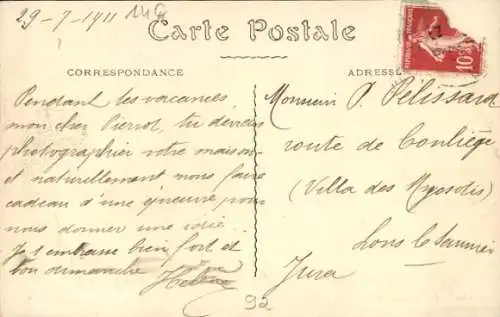 29-7-1911
Carte Postale
CORRESPONDANCE
ADRESSE
Pendant les vacances
mon cher Pierrot, tu devrais
photographier votre maison
et naturellement nous faire
cadeau d'une épreuve pour
nous donner une idée.
Je t'embrasse bien fort et
bon dimanche Hélène
Monsieur P. Pelissard
route de Conliège
(Villa des Myosotis)
Lons le Saunier
Jura
92